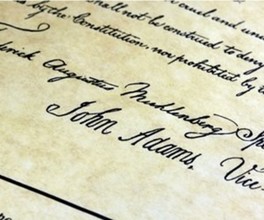 cruel and unu
shall not be construed to deny
by the Constitution, nor prohibited by it
derick Augustus Muhlenberg Spe
John Adams, Vice-